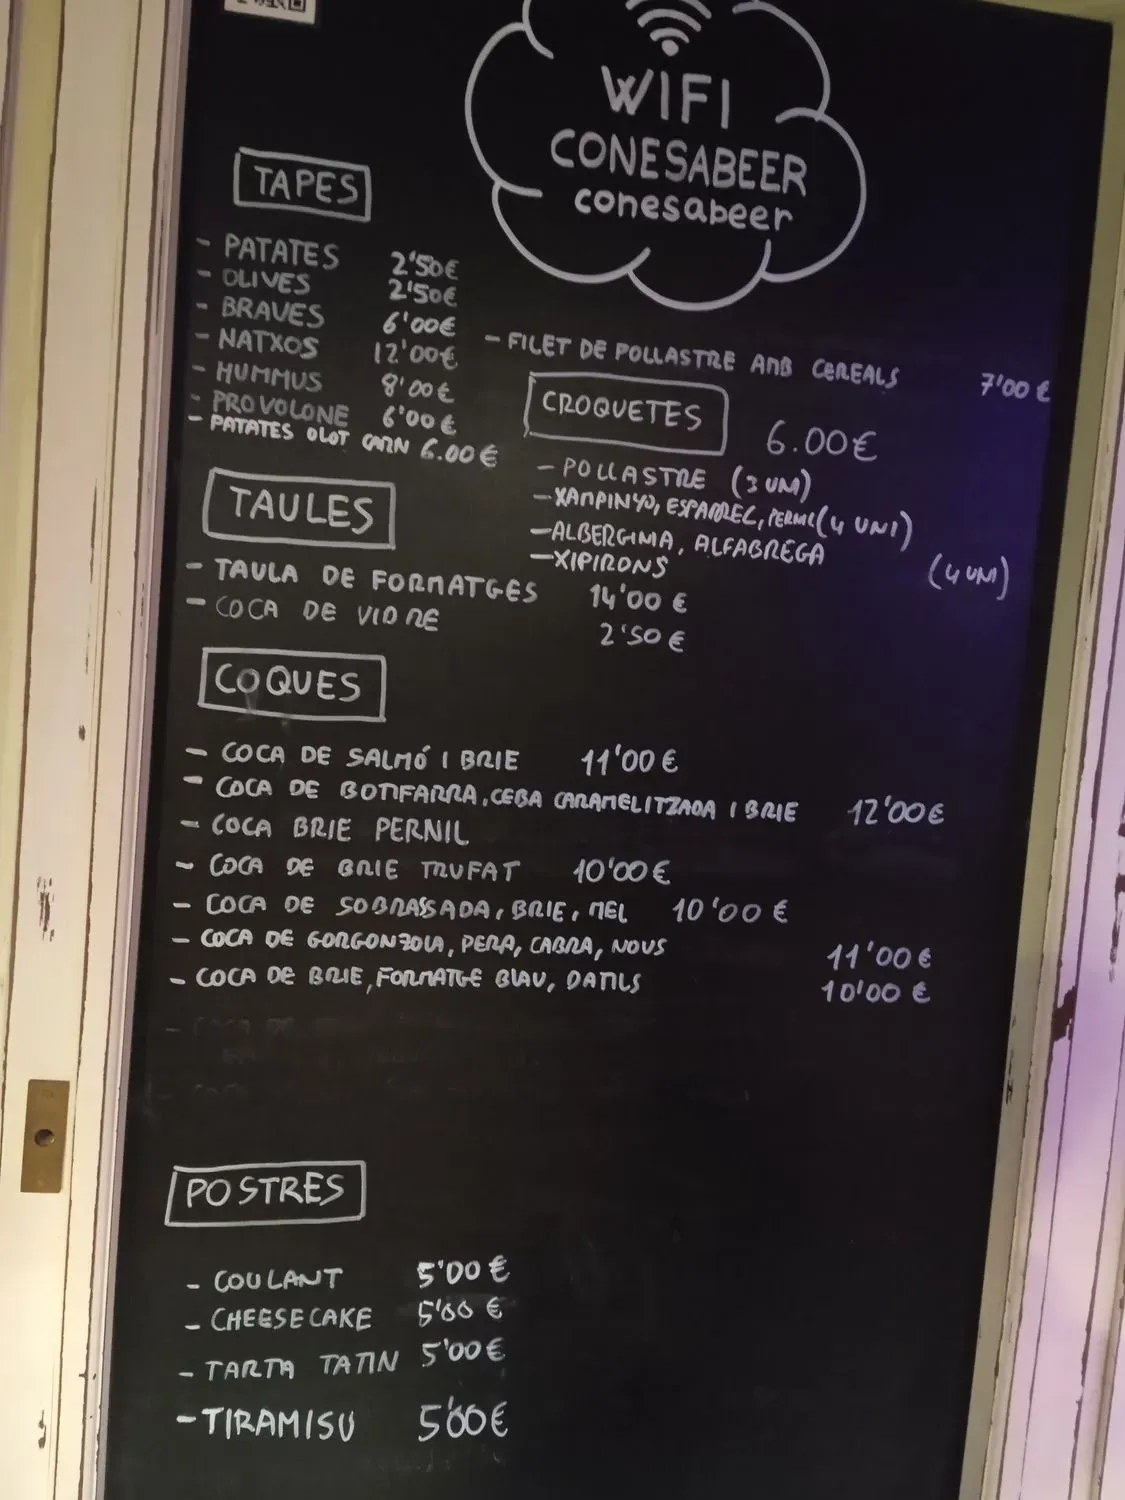 WIFI
CONESABEER
conesabeer
TAPES
- PATATES 2'50€
- OLIVES 2'50€
- BRAVES 6'00€
- NATXOS 12'00€
- HUMMUS 8'00€
- PROVOLONE 6'00€
- PATATES OLOT CARN 6.00€
- FILET DE POLLASTRE AMB CEREALS 7'00€
CROQUETES 6.00€
- POLLASTRE (3 UNI)
- XAMPINYO, ESPARREC, PERNIL (4 UNI)
- ALBERGINIA, ALFABREGA (4 UNI)
- XIPIRONS
TAULES
- TAULA DE FORMATGES 14'00 €
- COCA DE VIDRE 2'50€
COQUES
- COCA DE SALMÓ I BRIE 11'00€
- COCA DE BOTIFARRA, CEBA CARAMELITZADA I BRIE 12'00€
- COCA BRIE PERNIL
- COCA DE BRIE TRUFAT 10'00€
- COCA DE SOBRASSADA, BRIE, MEL 10'00€
- COCA DE GORGONZOLA, PERA, CABRA, NOUS 11'00€
- COCA DE BRIE, FORMATGE BLAU, DATILS 10'00 €
POSTRES
- COULANT 5'00€
- CHEESECAKE 5'00 €
- TARTA TATIN 5'00€
- TIRAMISU 5'00€